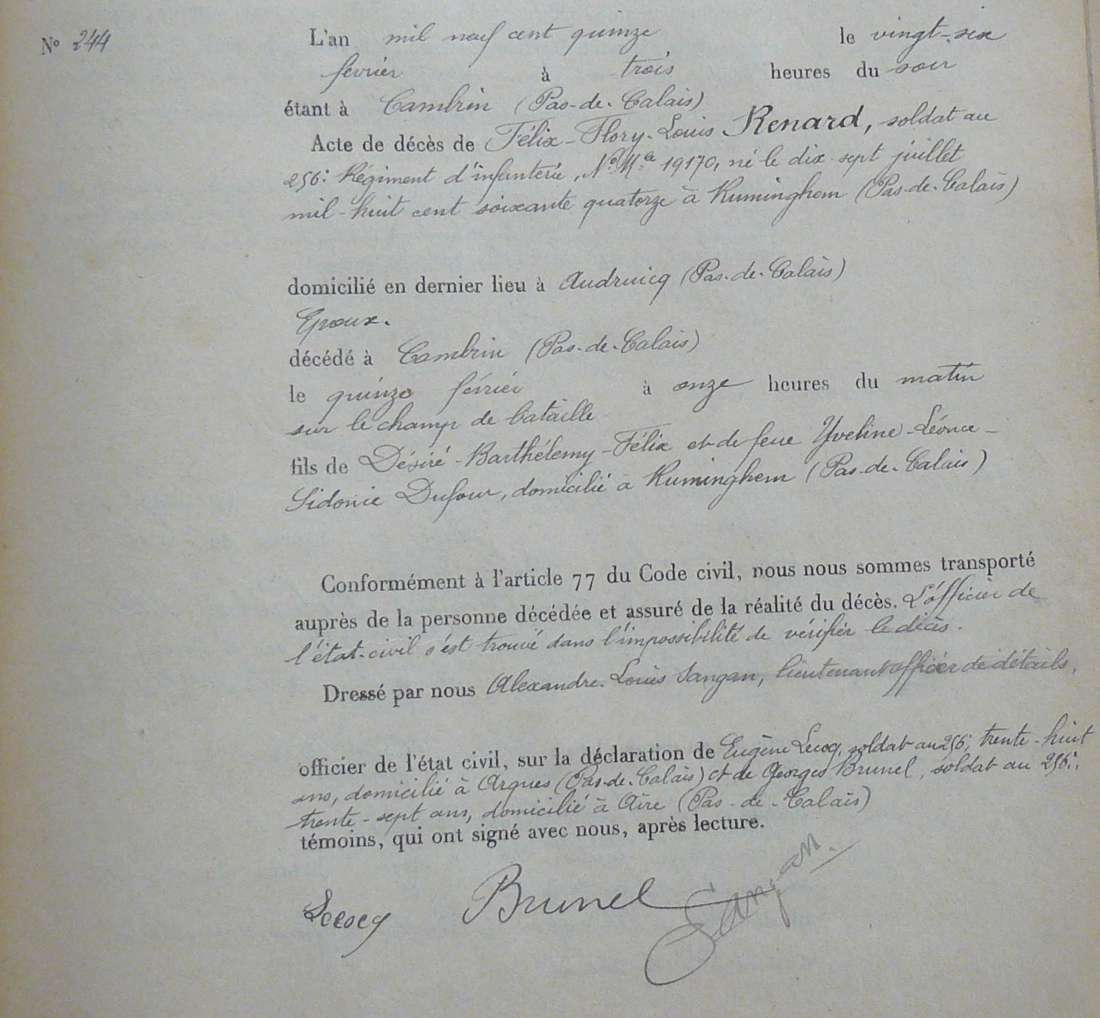 N° 244
L'an mil neuf cent quinze le vingt-six
février à trois heures du soir
étant à Cambrin (Pas-de-Calais)
Acte de décès de Félix-Flory-Louis Renard, soldat au
256e Régiment d'infanterie, N° Mle 19170, né le dix-sept juillet
mil-huit cent soixante quatorze à Ruminghem (Pas-de-Calais)
domicilié en dernier lieu à Audruicq (Pas-de-Calais)
Epoux.
décédé à Cambrin (Pas-de-Calais)
le quinze février à onze heures du matin
sur le champ de bataille
fils de Désiré-Barthélemy-Félix et de feue Yveline-Léonce-
Sidonie Dufour, domicilié à Ruminghem (Pas-de-Calais)
Conformément à l'article 77 du Code civil, nous nous sommes transporté
auprès de la personne décédée et assuré de la réalité du décès. L'officier de
l'état-civil s'est trouvé dans l'impossibilité de vérifier le décès.
Dressé par nous Alexandre-Louis Sangan, lieutenant officier de détails,
officier de l'état civil, sur la déclaration de Eugène Lecoq, soldat au 256e, trente-huit
ans, domicilié à Arques (Pas-de-Calais) et de Georges Brunel, soldat au 256e,
trente-sept ans, domicilié à Aire (Pas-de-Calais)
témoins, qui ont signé avec nous, après lecture.
Lecocq Brunel Sangan